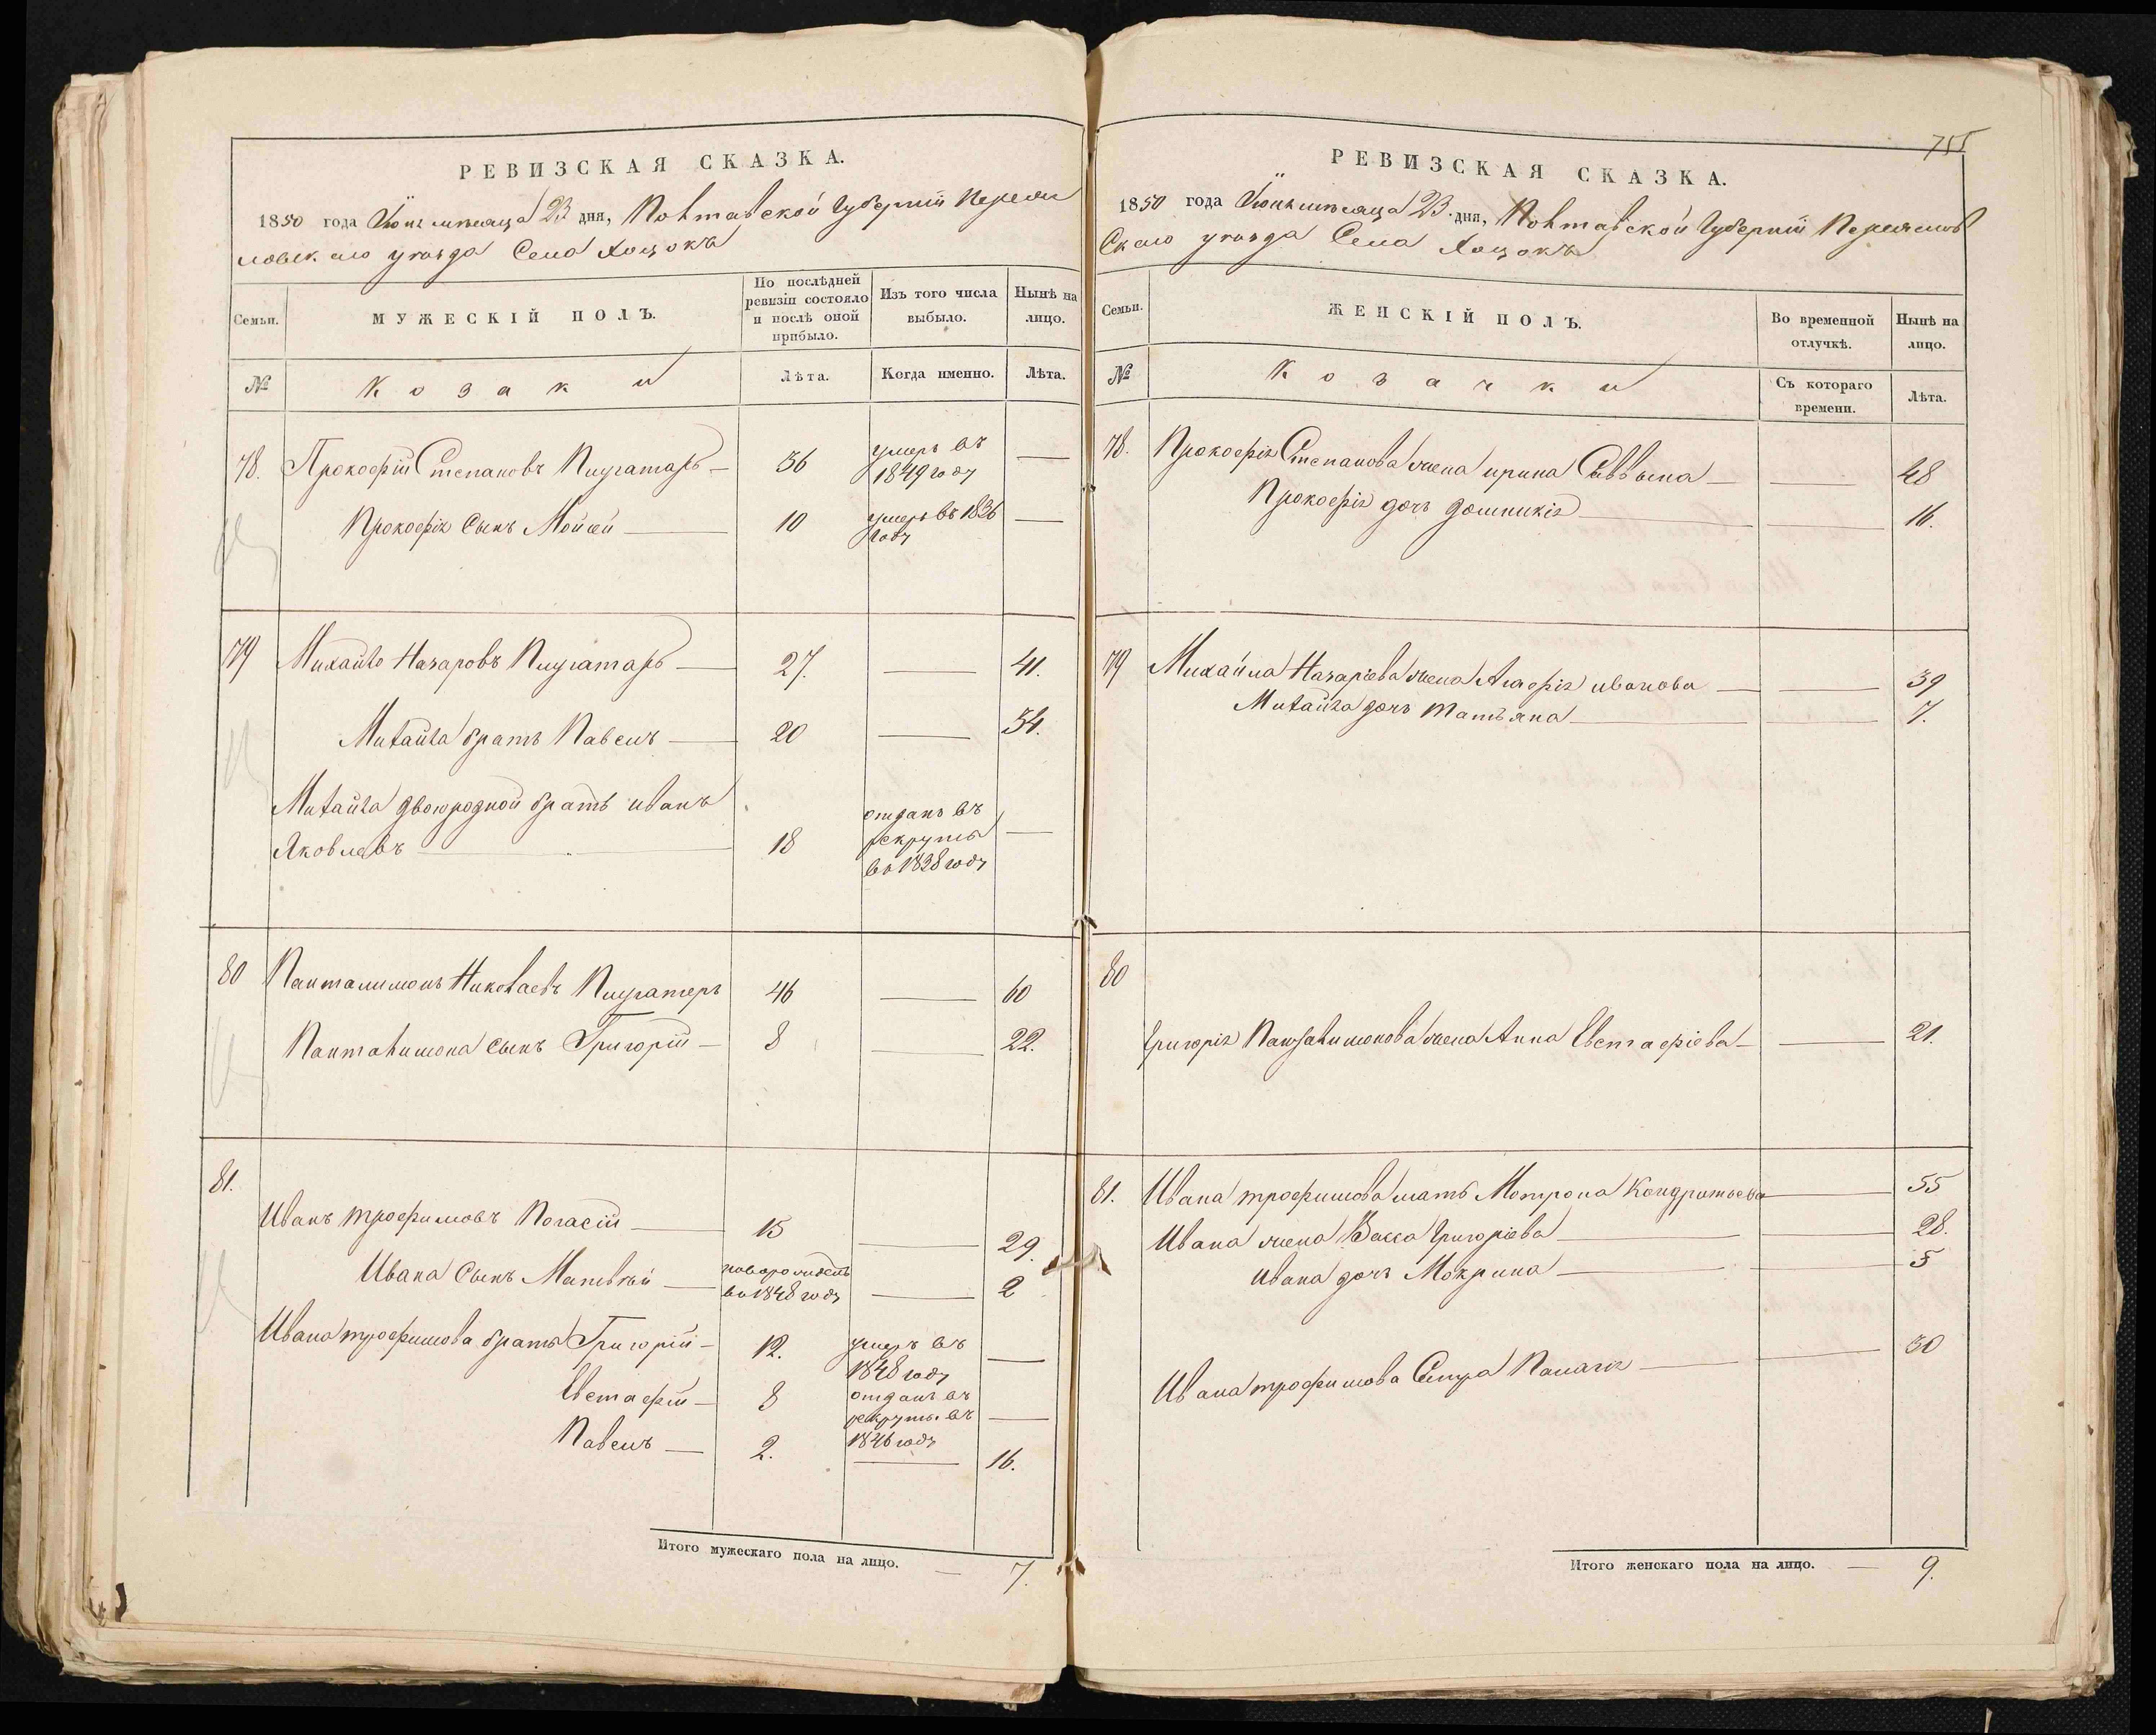 РЕВИЗСКАЯ СКАЗКА.
1850 года Июнь мѣсяца 23 дня, Полтавской Губерніи Переяс
ловскаго уѣзда Села Хоцокъ
Семьи.
МУЖЕСКІЙ ПОЛЪ.
По послѣдней ревизіи состояло и послѣ оной прибыло.
Изъ того числа выбыло.
Нынѣ на лицо.
№
Козаки
Лѣта.
Когда именно.
Лѣта.
78. Прокофій Степановъ — 36 умеръ въ 1849 году —
Прокофія Сынъ Мойсей — 10 умеръ въ 1836 году —
79 Михайло Назаровъ — 27. — 41.
Михайла братъ Павелъ — 20 — 34.
Михайла двоюродной братъ иванъ
Яковлевъ — 18 отданъ въ рекруты во 1838 году —
80 Панталимонъ Николаевъ 46 — 60
Панталимона сынъ Григорій — 8 — 22.
81.
Иванъ трофимовъ Погасій — 15 — 29.
Ивана Сынъ Матвѣй — новорожденъ во 1848 году — 2
Ивана трофимова братъ Григорій — 12. умеръ въ 1848 году —
Евстафій — 8 отданъ въ рекруты въ 1846 году —
Павелъ — 2. — 16.
Итого мужескаго пола на лицо. — 7.
755
РЕВИЗСКАЯ СКАЗКА.
1850 года Июнь мѣсяца 23. дня, Полтавской Губерніи Переяслов
Скаго уѣзда Села Хоцокъ
Семьи.
ЖЕНСКІЙ ПОЛЪ.
Во временной отлучкѣ.
Нынѣ на лицо.
№
Козачки
Съ котораго времени.
Лѣта.
78. Прокофія Степанова жена ирина Саввина — — 48
Прокофія дочь домникія — — 16.
79 Михайла Назаріева жена Агафія иванова — — 39
Михайла дочь татьяна — — 7.
80
Григорія Панталимонова жена Анна Евстафіева — — 21.
81. Ивана трофимова мать Мотрона Кондратьева — 55
Ивана жена Васса Григоріева — — 28.
ивана дочь Мокрина — — 5
Ивана трофимова Сестра — — 30
Итого женскаго пола на лицо. — 9.